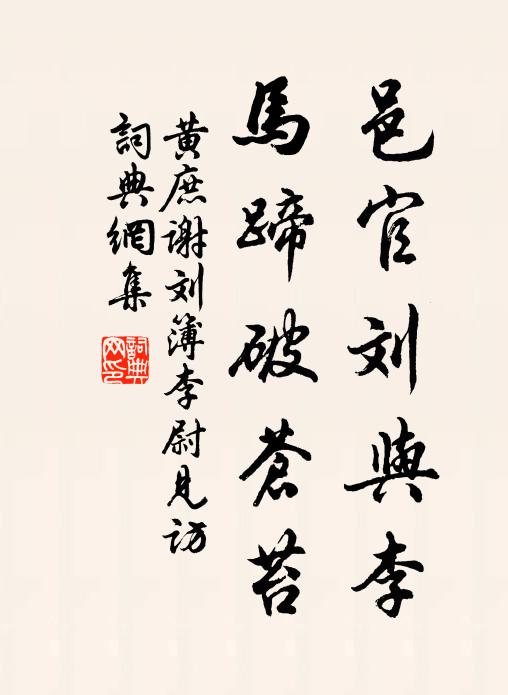 邑官刘與李
馬蹄破蒼苔
黄庶谢刘簿李尉見访
詞典網集
詞典網印